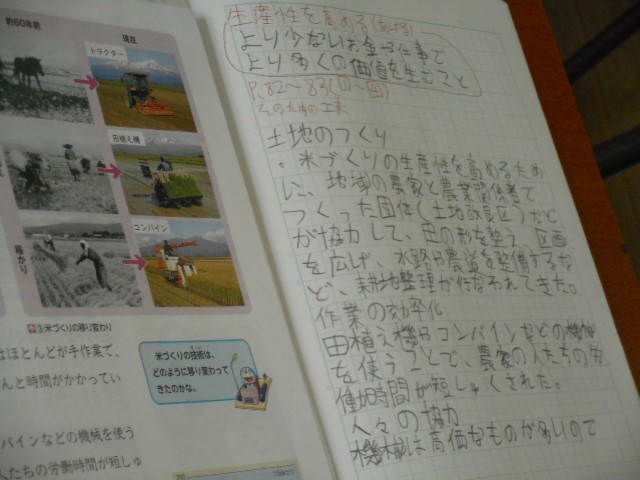 約60年前
現在
トラクター
田植え機
コンバイン
稲かり
3 米づくりの移り変わり
はほとんどが手作業で、
んと時間がかかってい
米づくりの技術は、
どのように移り変わって
きたのかな。
バインなどの機械を使う
人たちの労働時間が短しゅ
生産性を高める(あげる)
より少ないお金や仕事で
より多くの価値を生むこと
P.82~83
そのための工夫
土地のつくり
・米づくりの生産性を高めるため
に、地域の農家と農業関係者で
つくった団体(土地改良区)など
が協力して、田の形を整え、区画
を広げ、水路や農道を整備するな
ど、耕地整理が行なわれてきた。
作業の効率化
田植え機やコンバインなどの機械
を使うことで、農家の人たちの労
働時間が短しゅくされた。
人々の協力
機械は高価なものが多いので